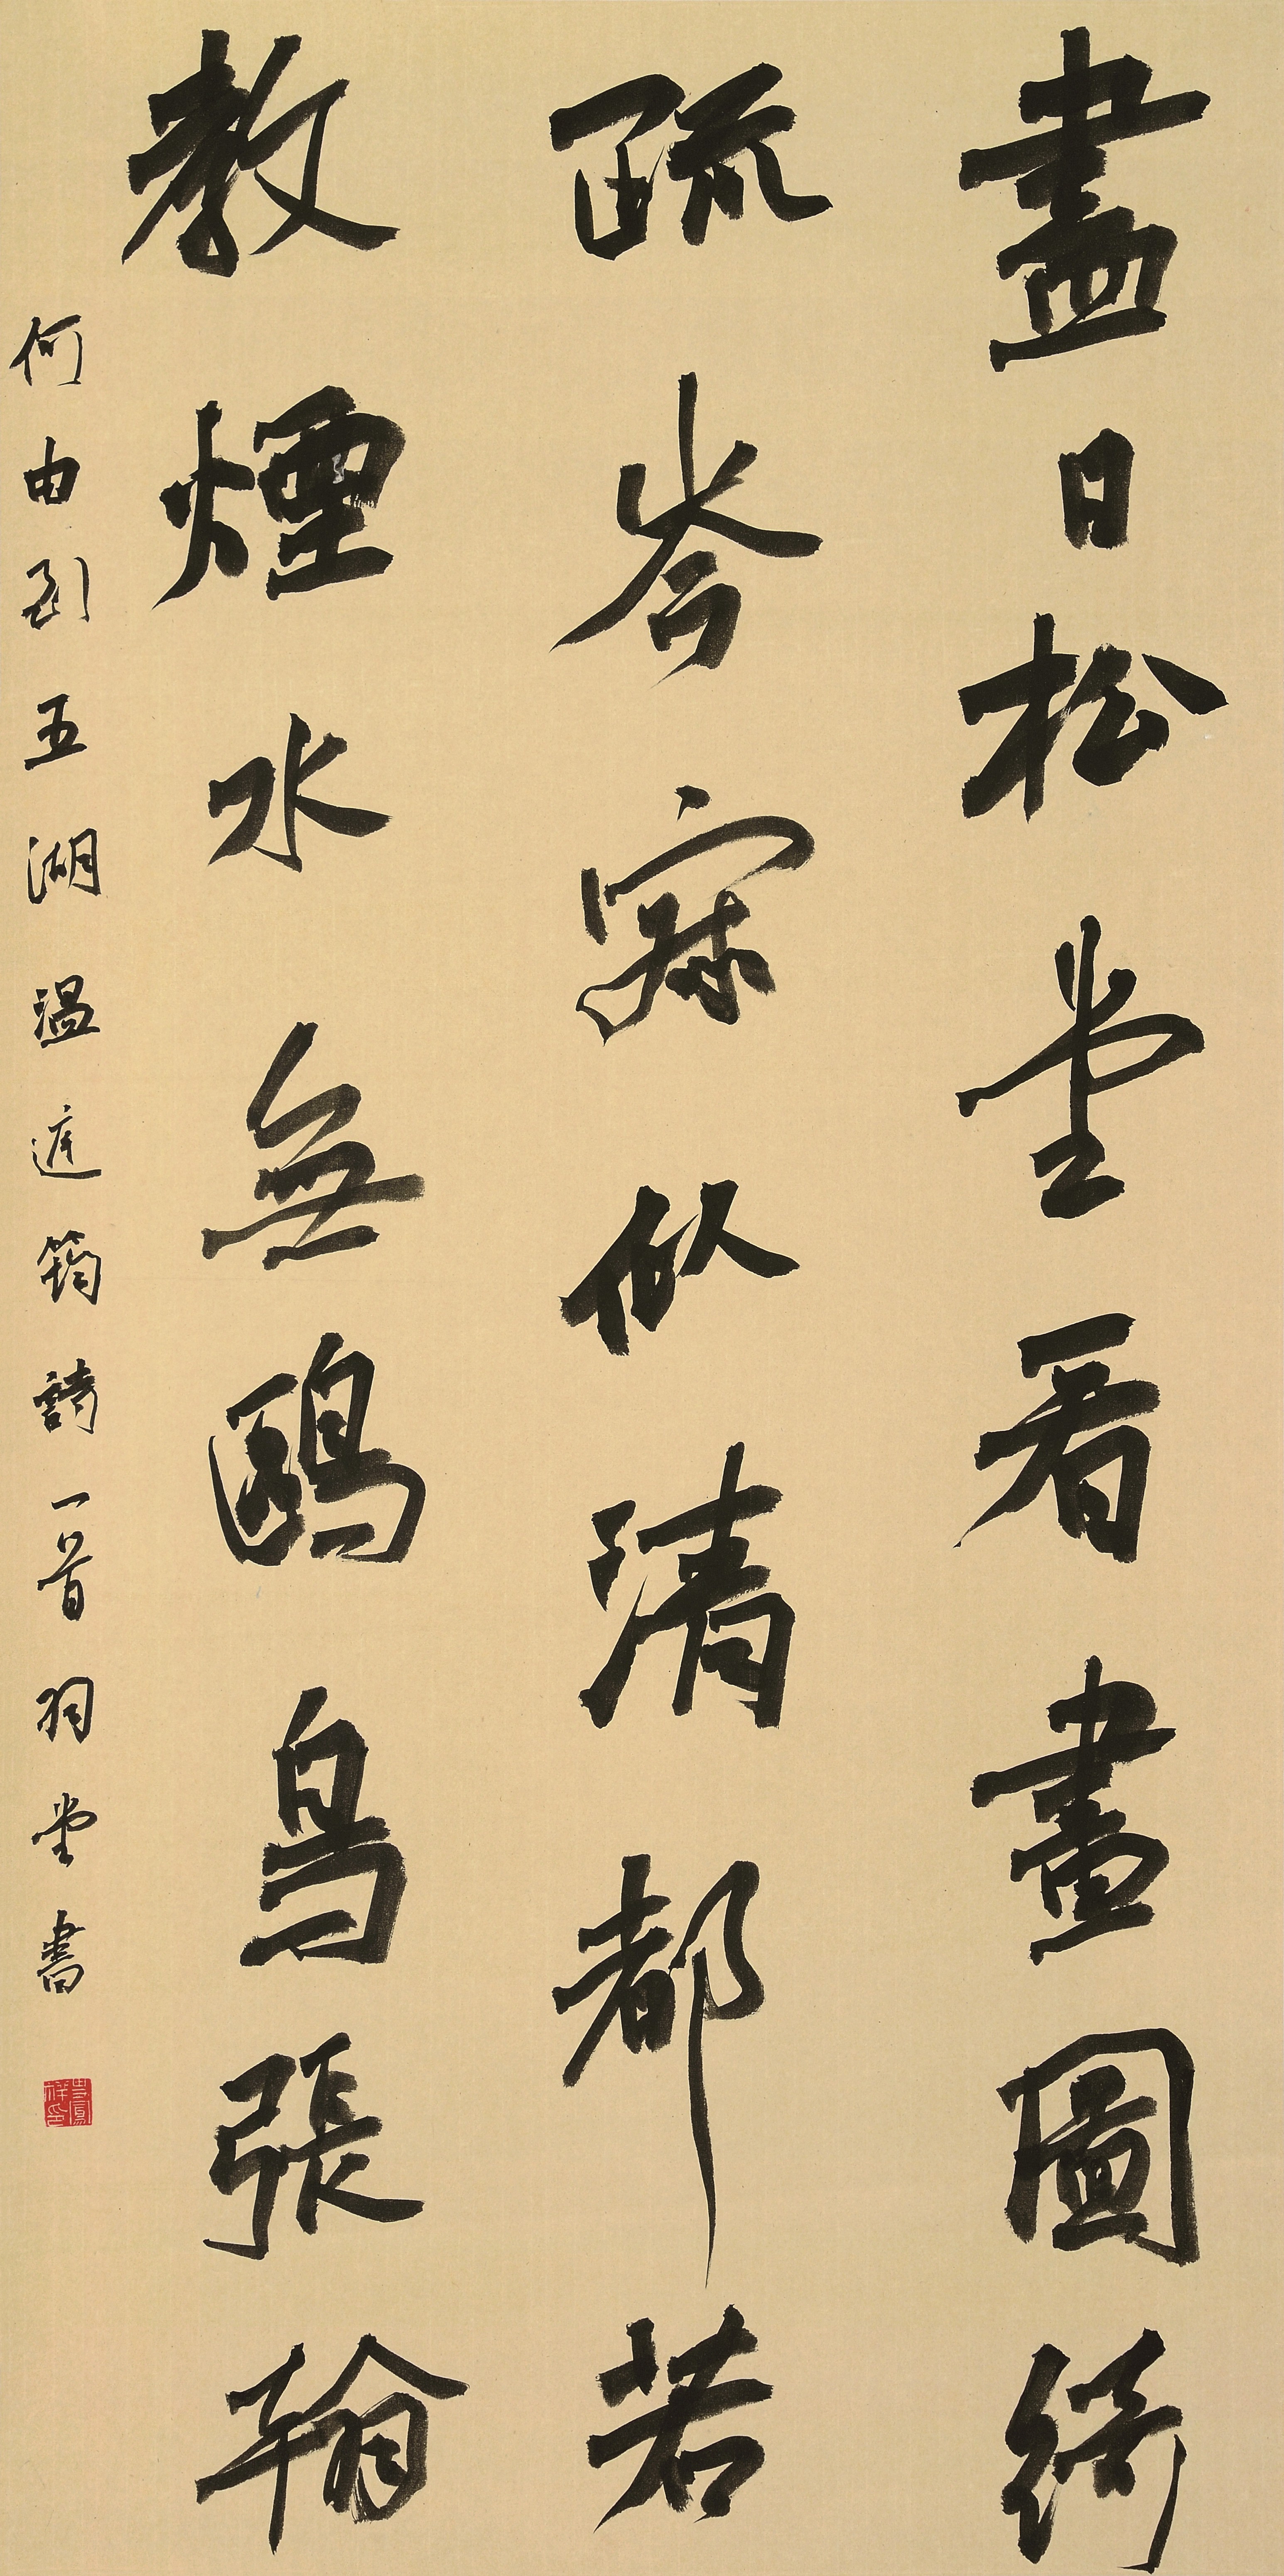 盡日松堂看畫圖綺
疏岑寂似清都若
教煙水無鷗鳥張翰
何由到五湖溫庭筠詩一首羽堂書